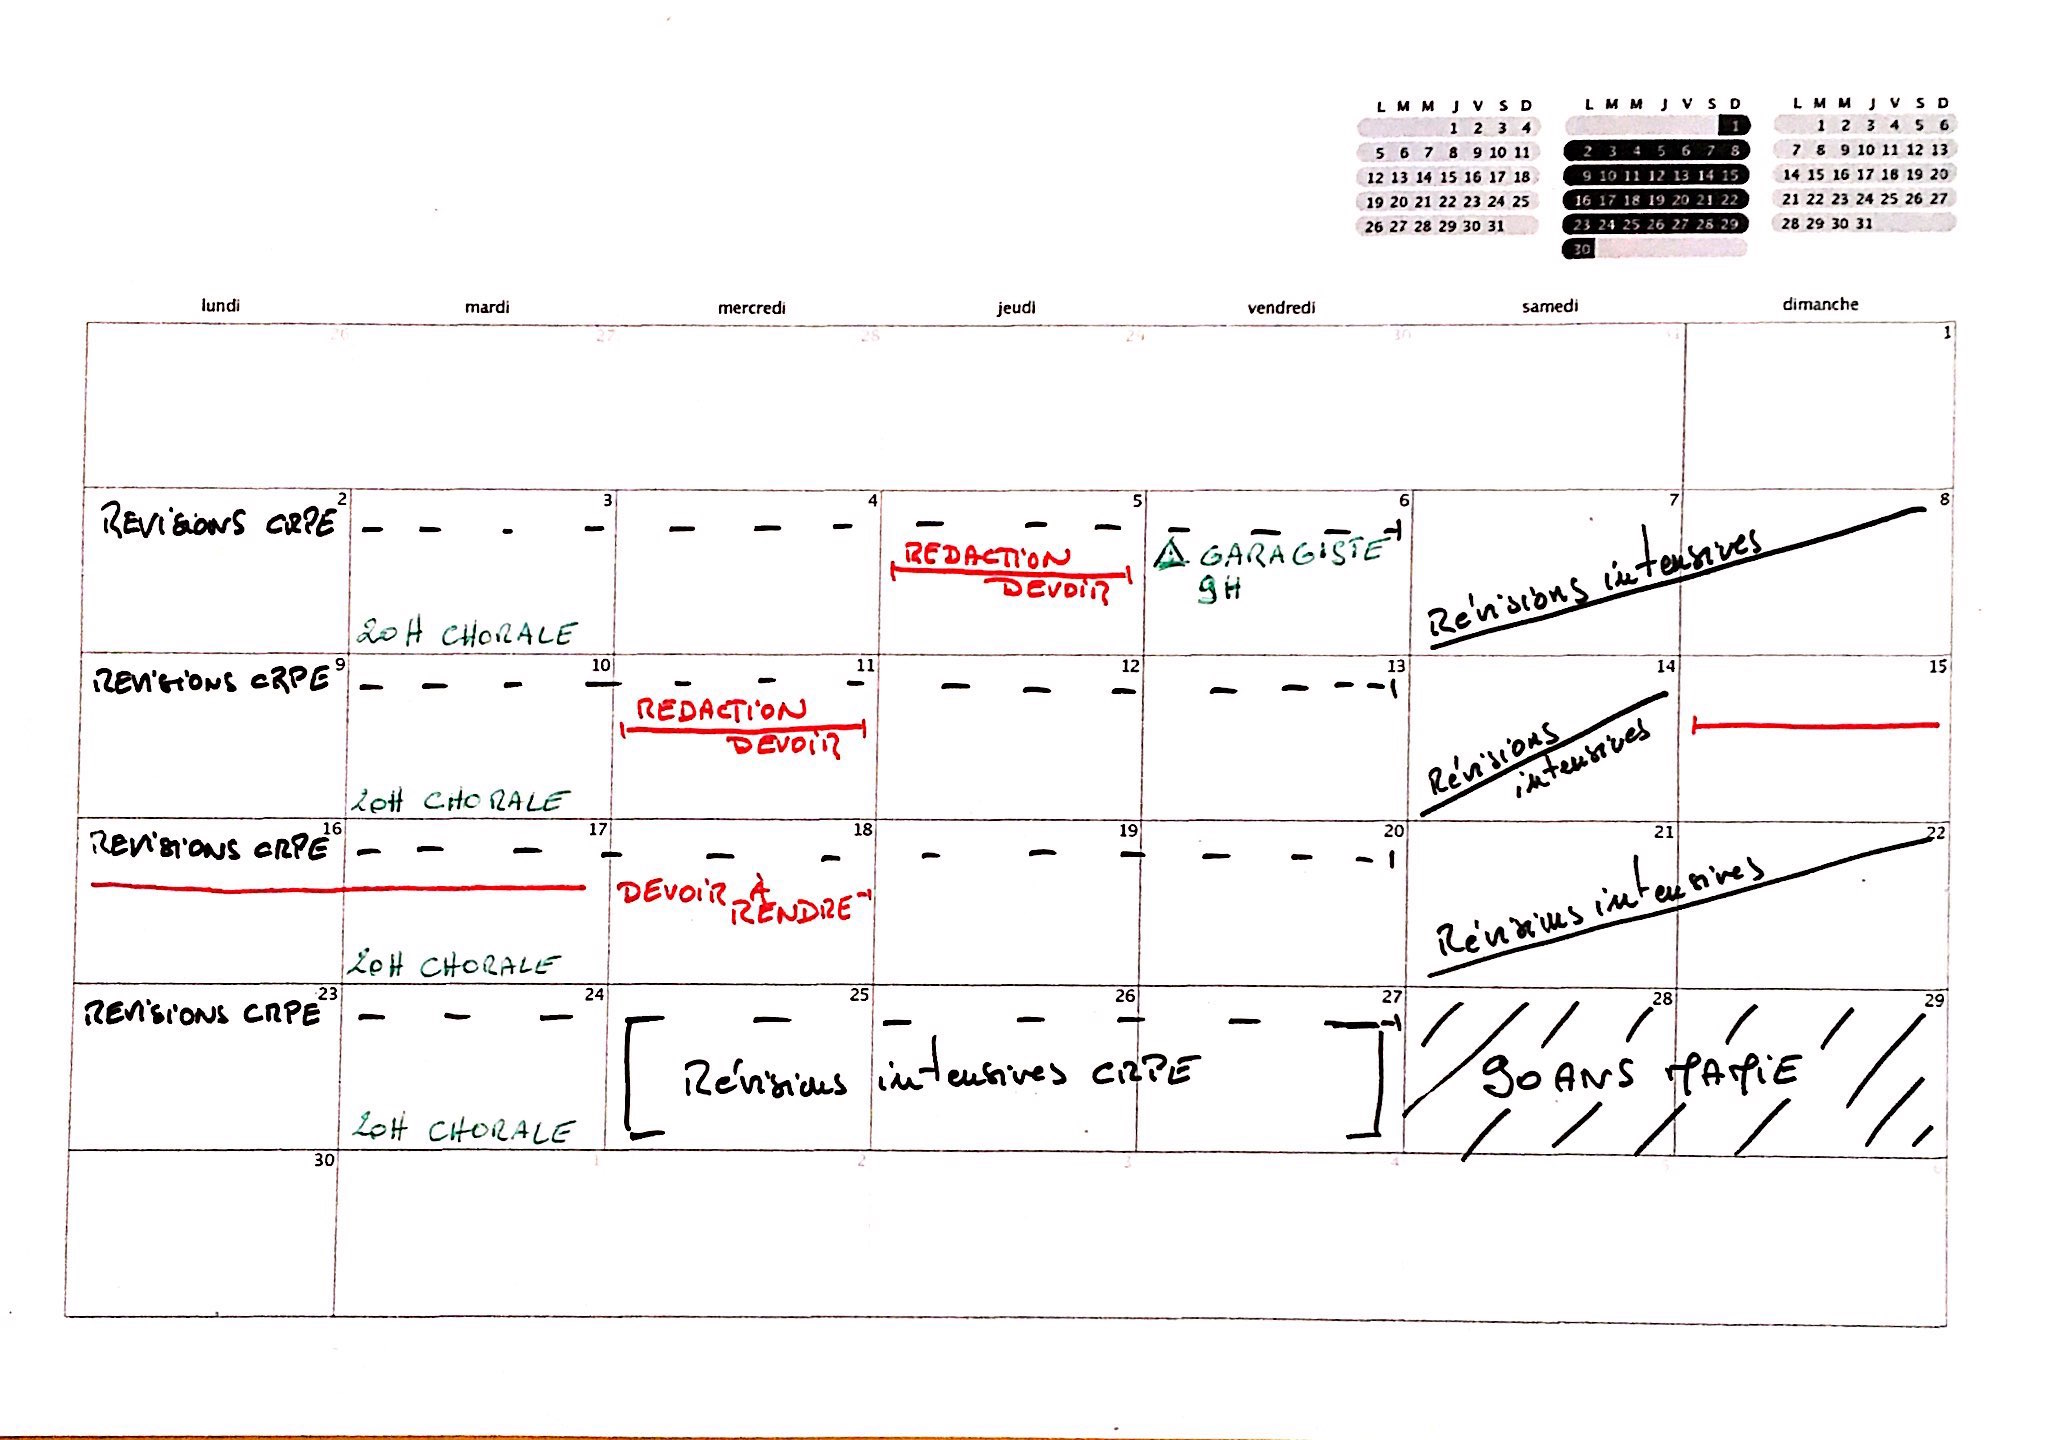 L M M J V S D
1 2 3 4
5 6 7 8 9 10 11
12 13 14 15 16 17 18
19 20 21 22 23 24 25
26 27 28 29 30 31
L M M J V S D
1
2 3 4 5 6 7 8
9 10 11 12 13 14 15
16 17 18 19 20 21 22
23 24 25 26 27 28 29
30
L M M J V S D
1 2 3 4 5 6
7 8 9 10 11 12 13
14 15 16 17 18 19 20
21 22 23 24 25 26 27
28 29 30 31
lundi mardi mercredi jeudi vendredi samedi dimanche
26 27 28 29 30 31 1
2 3 4 5 6 7 8
REVISIONS CRPE
REDACTION
DEVOIR
GARAGISTE
9H
Révisions intensives
20H CHORALE
9 10 11 12 13 14 15
REVISIONS CRPE
REDACTION
DEVOIR
Révisions
intensives
20H CHORALE
16 17 18 19 20 21 22
REVISIONS CRPE
DEVOIR À
RENDRE
Révisions intensives
20H CHORALE
23 24 25 26 27 28 29
REVISIONS CRPE
Révisions intensives CRPE
90 ANS MAMIE
20H CHORALE
30 1 2 3 4